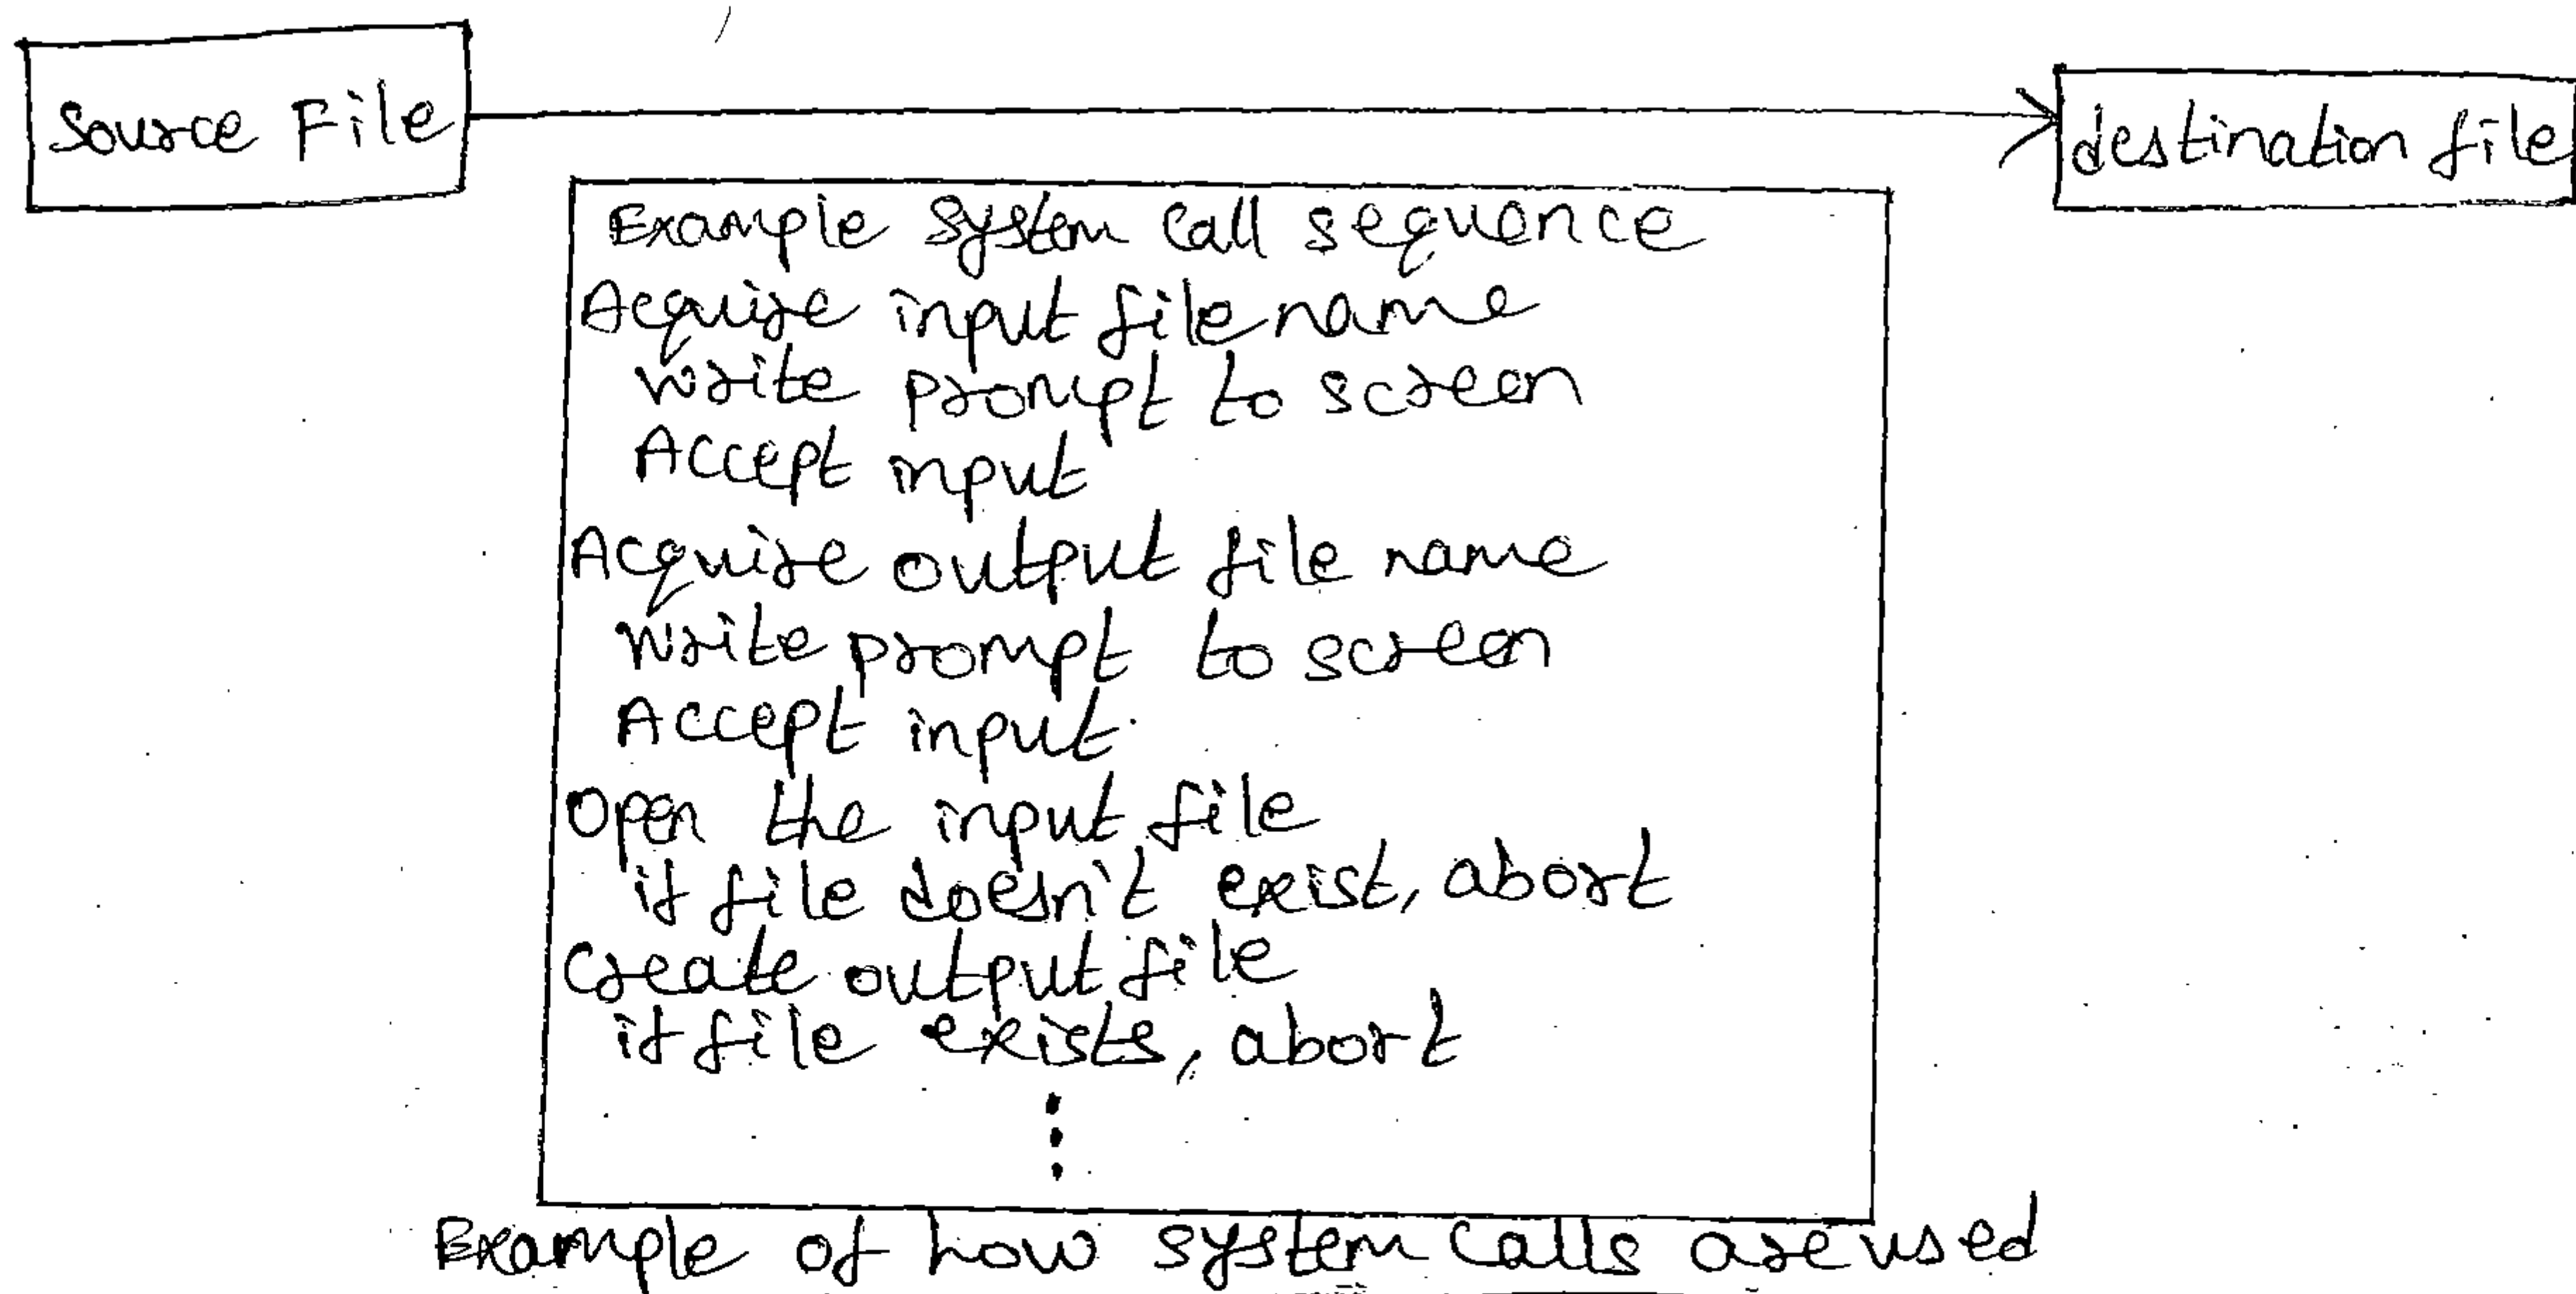 Source File
destination file
Example System Call sequence
Acquire input file name
write prompt to screen
Accept input
Acquire output file name
write prompt to screen
Accept input
Open the input file
if file doesn't exist, abort
Create output file
if file exists, abort
Example of how system calls are used